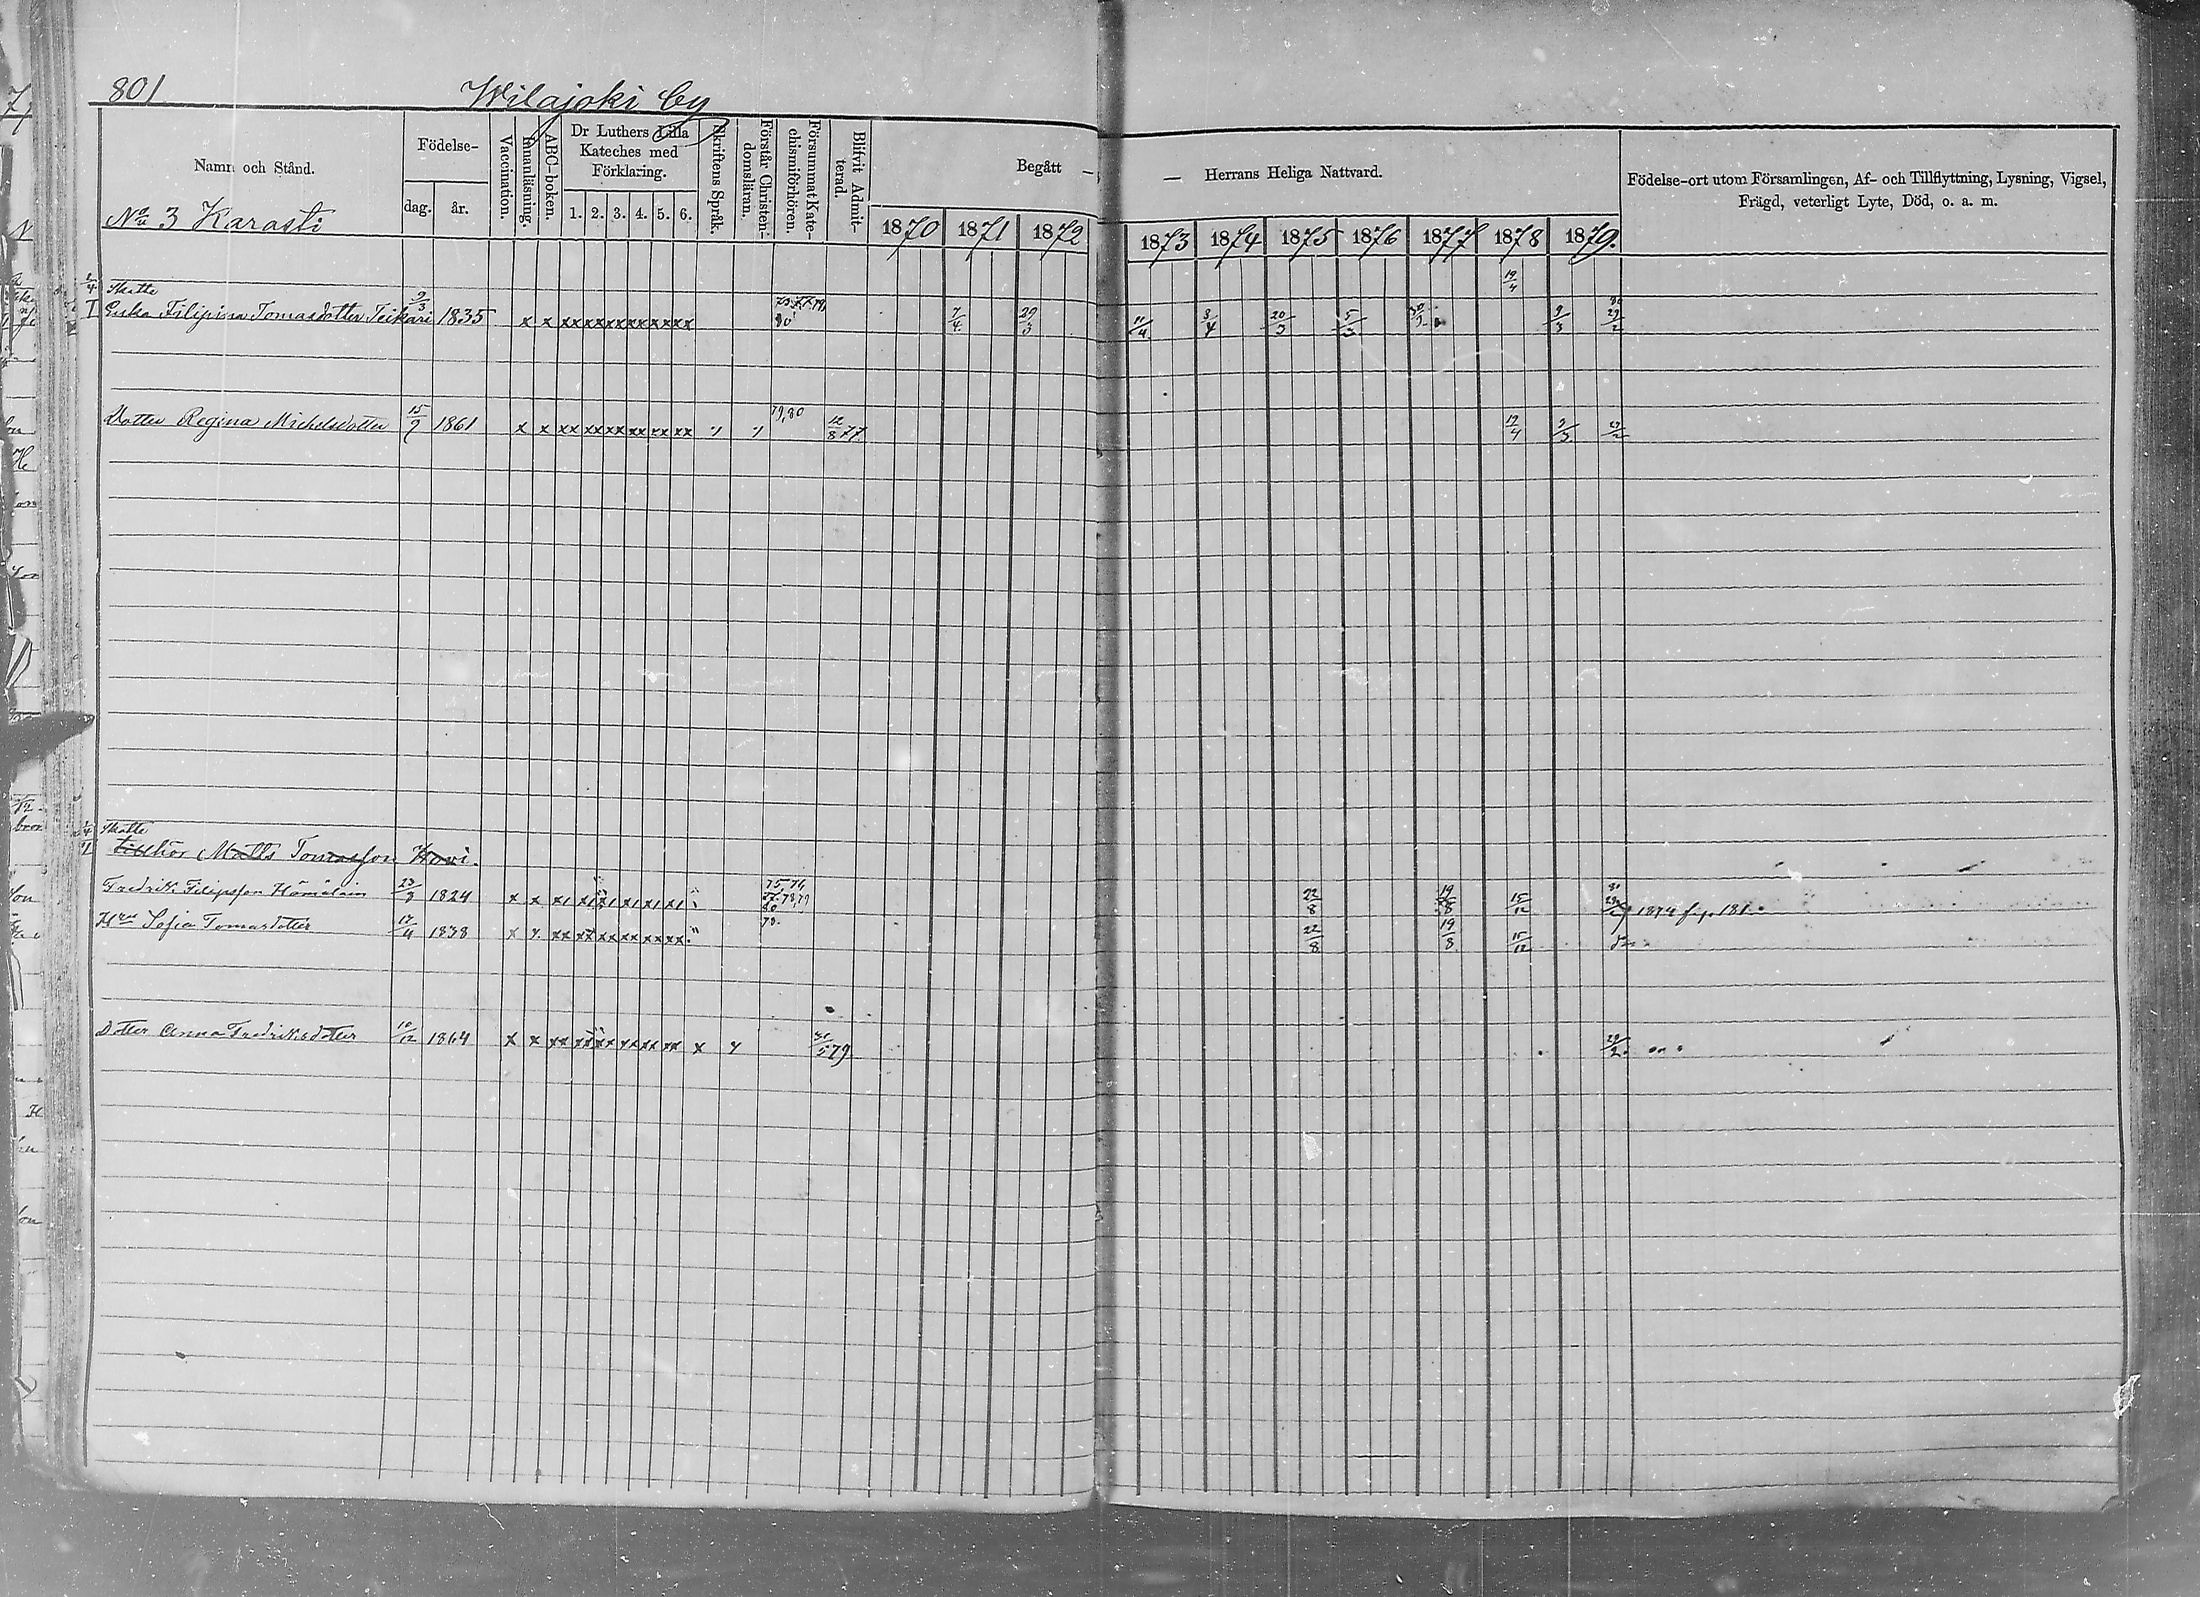 801 Wilajoki by
Namn och Stånd.
Födelse-
dag. år.
Vaccination.
Innanläsning.
ABC-boken.
Dr Luthers Lilla
Kateches med
Förklaring.
1. 2. 3. 4. 5. 6.
Skriftens Språk.
Förstår Christen-
domsläran.
Försummat Kate-
chismiförhören.
Blifvit Admit-
terad.
Begått — — Herrans Heliga Nattvard.
1870 1871 1872 1873 1874 1875 1876 1877 1878 1879.
Födelse-ort utom Församlingen, Af- och Tillflyttning, Lysning, Vigsel,
Frägd, veterligt Lyte, Död, o. a. m.
No 3 Karasti
19/4
Skatte
Enka Filipina Tomasdotter Teikari 9/3 1835 x x xx xx xx xx xx xx 80 7/4 29/3 11/4 8/4 20/3 5/3 9/3 29/2
Dotter Regina Michelsdotter 15/9 1861 x x xx xx xx xx xx xx 79,80 12/8 77 19/4 9/3 29/2
Skatte
tillhör Matts Tomasson Howi.
Fredrik Filipsson Hämäläin 23/3 1824 x x 75,76 77.78,79 80 22/8 19/8 15/12 1874 p. 181
Hru Sofia Tomasdotter 17/4 1838 x x xx xx xx xx xx xx 78. 22/8 19/8 15/12
Dotter Anna Fredriksdotter 10/12 1864 x x xx xx xx xx xx xx x x 31/5 79 29/2